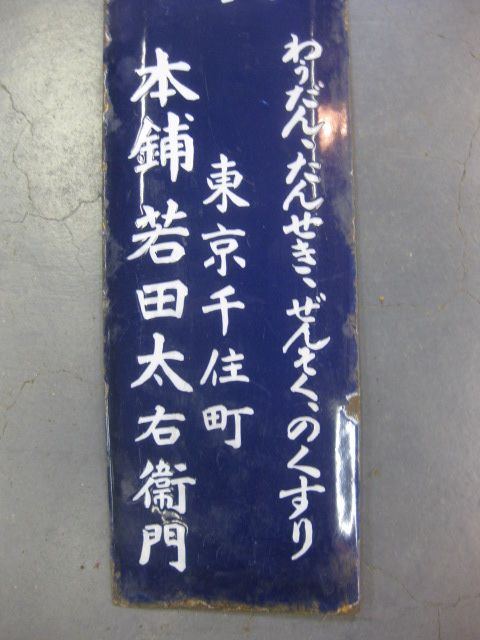 わうだん、たんせき、ぜんそく、のくすり
東京千住町
本舗 若田太右衛門